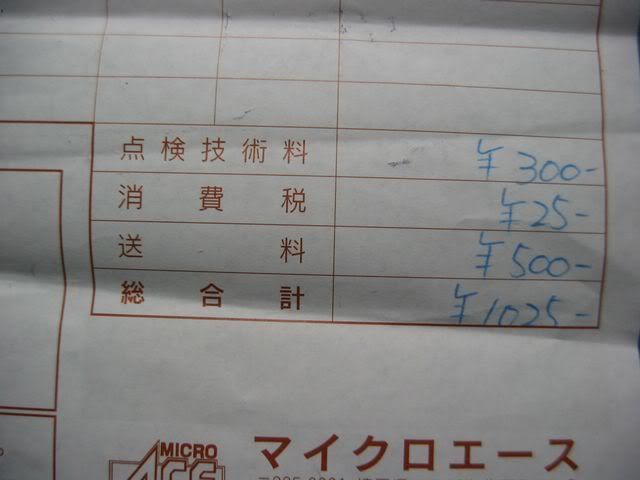 点検技術料 ¥300-
消費税 ¥25-
送料 ¥500-
総合計 ¥1025-
MICRO
ACE
マイクロエース